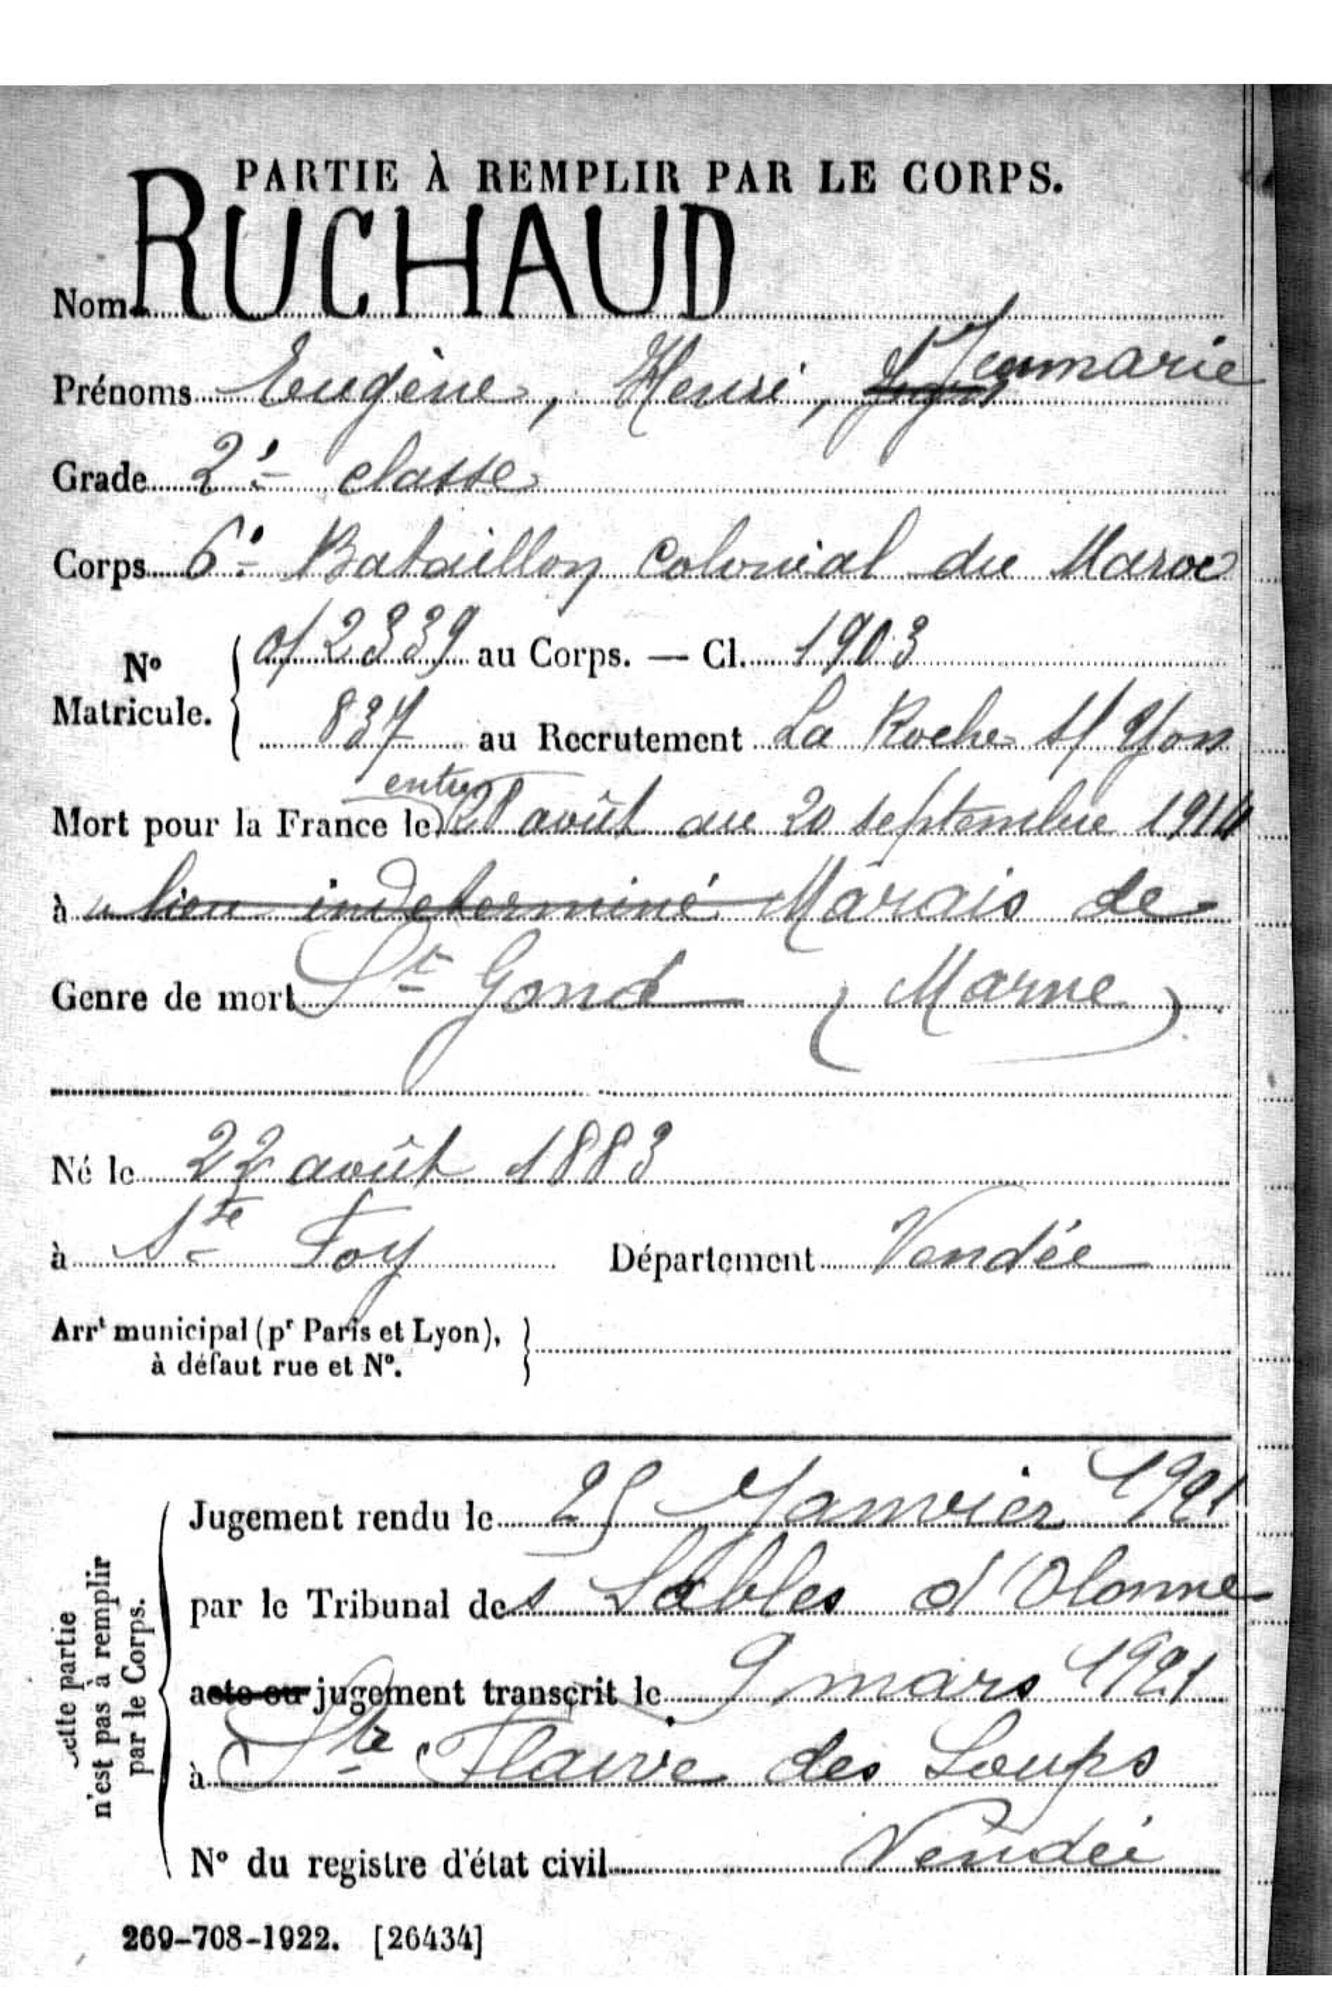 PARTIE À REMPLIR PAR LE CORPS.
Nom RUCHAUD
Prénoms Eugène, Henri, Jeanmarie
Grade 2e classe
Corps 6e Bataillon Colonial du Maroc
No Matricule. { 012339 au Corps. — Cl. 1903
837 au Recrutement La Roche s/ Yon
entre
Mort pour la France le 28 août au 20 septembre 1914
à lieu indeterminé Marais de
Genre de mort St Gond (Marne)
Né le 22 août 1883
à Ste Foy Département Vendée
Arrt municipal (pr Paris et Lyon), }
à défaut rue et No.
Cette partie
n'est pas à remplir
par le Corps.
Jugement rendu le 25 Janvier 1921
par le Tribunal des Sables d'Olonne
acte ou jugement transcrit le 9 mars 1921
à Ste Flaive des Loups
No du registre d'état civil Vendée
269-708-1922. [26434]